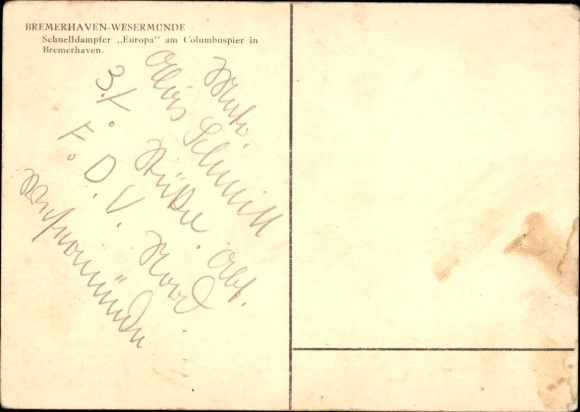 BREMERHAVEN-WESERMÜNDE
Schnelldampfer „Europa" am Columbuspier in
Bremerhaven.
Alois Schmitt
3./. Abt.
F. D. V. Nord
Wesermünde